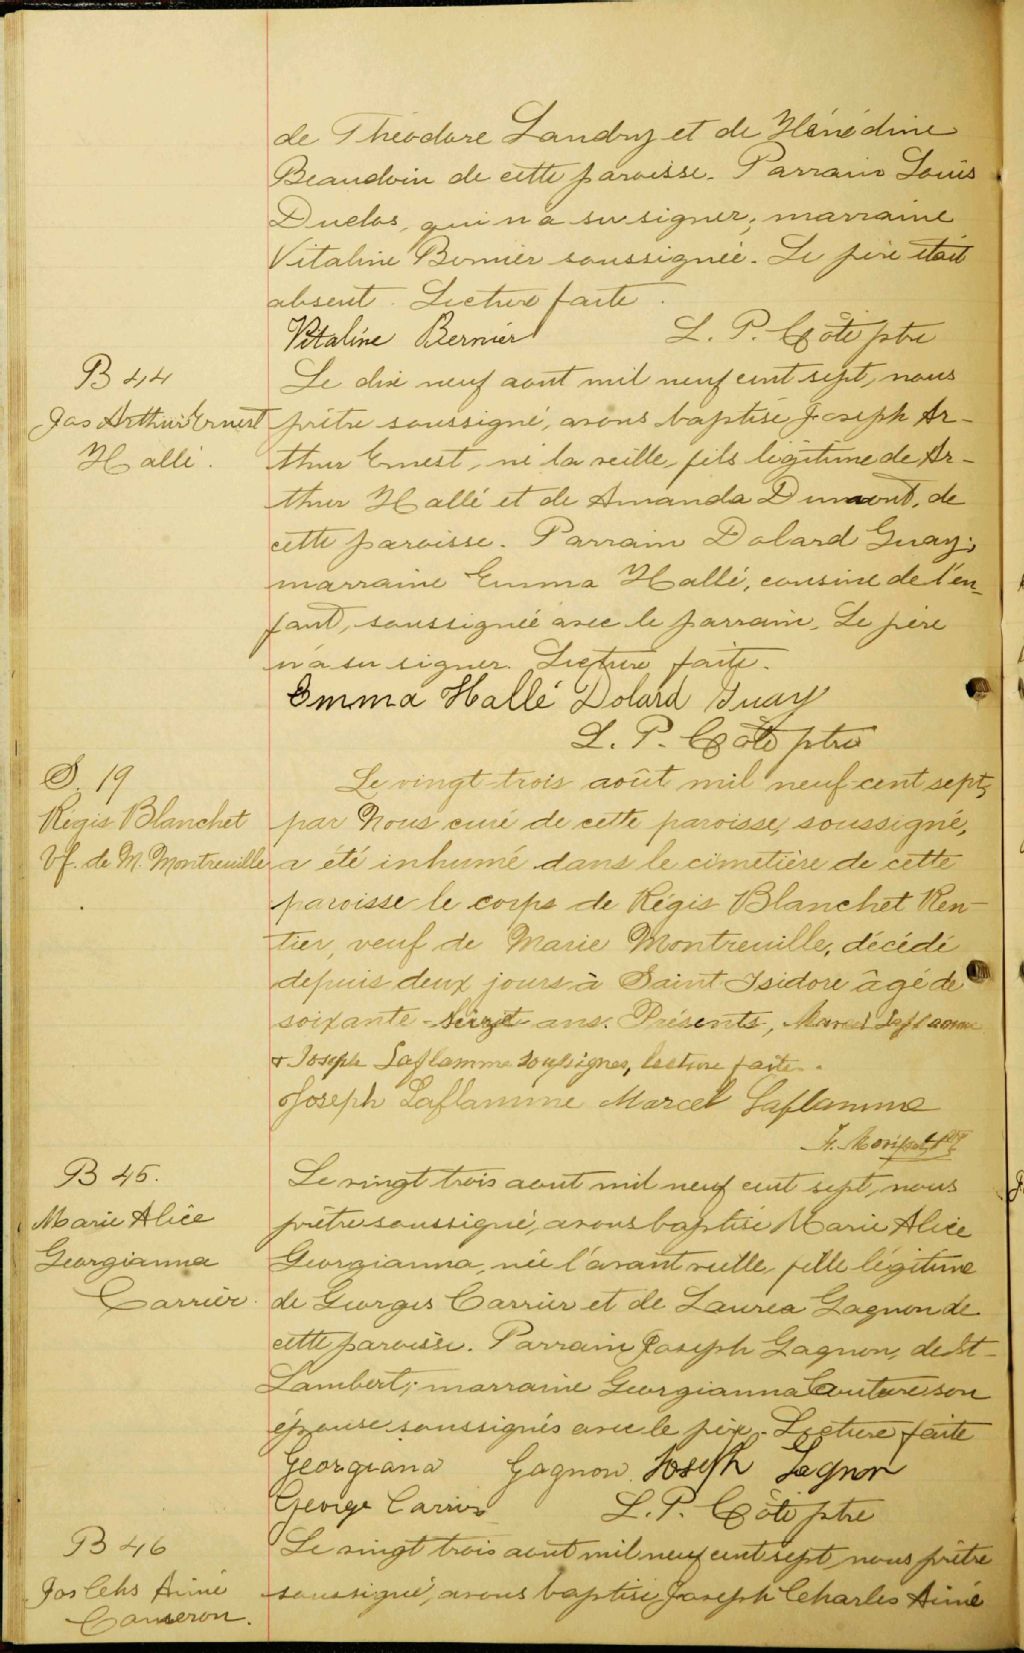 de Théodore Landry et de Hénédine
Beaudoin de cette paroisse. Parrain Louis
Duclos, qui n'a su signer; marraine
Vitaline Bernier soussignée. Le père était
absent. Lecture faite.
Vitaline Bernier L. P. Côté ptre
B 44
Jos Arthur Ernest
Hallé.
Le dix neuf aout mil neuf cent sept, nous
prêtre soussigné, avons baptisé Joseph Ar-
thur Ernest, né la veille, fils légitime de Ar-
thur Hallé et de Amanda Dumont, de
cette paroisse. Parrain Dolard Guay;
marraine Emma Hallé, cousine de l'en-
fant, soussignée avec le parrain. Le père
n'a su signer. Lecture faite.
Emma Hallé Dolard Guay
L. P. Côté ptre
S. 19
Régis Blanchet
Vf. de M. Montreuille
Le vingt-trois août mil neuf-cent sept,
par Nous curé de cette paroisse, soussigné,
a été inhumé dans le cimetière de cette
paroisse le corps de Régis Blanchet Ren-
tier, veuf de Marie Montreuille, décédé
depuis deux jours à Saint Isidore âgé de
soixante-seize ans. Présents, Marcel Laflamme
& Joseph Laflamme soussignés, lecture faite.
Joseph Laflamme Marcel Laflamme
B 45.
Marie Alice
Georgianna
Carrier.
Le vingt trois aout mil neuf cent sept, nous
prêtre soussigné, avons baptisé Marie Alice
Georgianna, née l'avant veille, fille légitime
de Georges Carrier et de Laurea Gagnon de
cette paroisse. Parrain Joseph Gagnon, de St-
Lambert; marraine Georgianna Couture son
épouse soussignés avec le père. Lecture faite
Georgiana Gagnon Joseph Gagnon
George Carrier L. P. Côté ptre
B 46
Jos Chs Aimé
Cameron.
Le vingt trois aout mil neuf cent sept, nous prêtre
soussigné, avons baptisé Joseph Charles Aimé